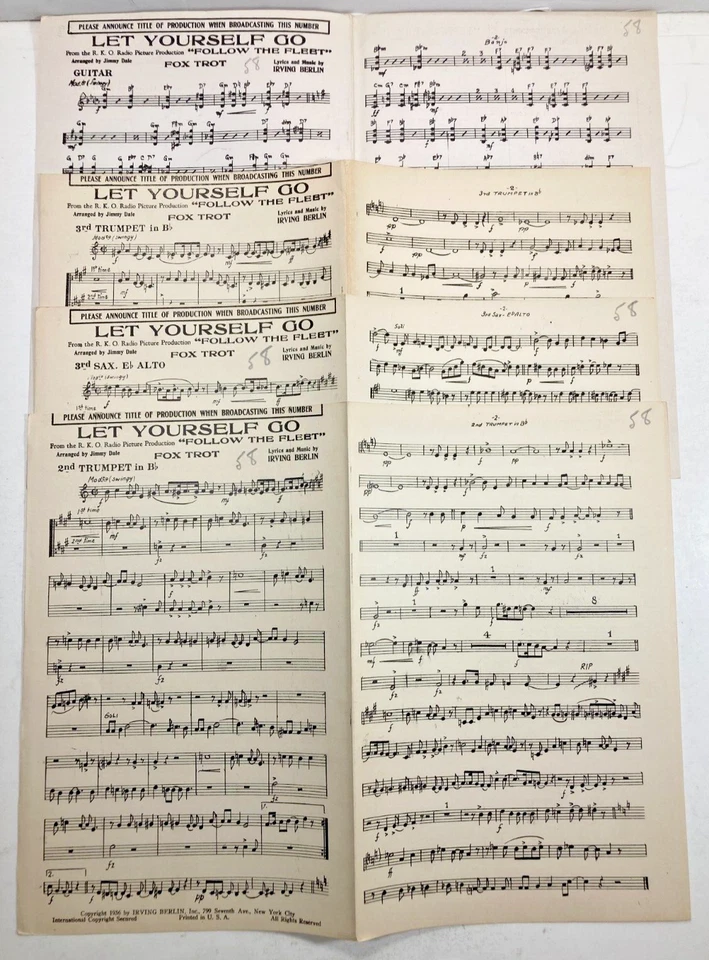 PLEASE ANNOUNCE TITLE OF PRODUCTION WHEN BROADCASTING THIS NUMBER
LET YOURSELF GO
From the R. K. O. Radio Picture Production "FOLLOW THE FLEET"
Arranged by Jimmy Dale
FOX TROT
Lyrics and Music by
IRVING BERLIN
58
GUITAR
-2-
Banjo
58
PLEASE ANNOUNCE TITLE OF PRODUCTION WHEN BROADCASTING THIS NUMBER
LET YOURSELF GO
From the R. K. O. Radio Picture Production "FOLLOW THE FLEET"
Arranged by Jimmy Dale
FOX TROT
Lyrics and Music by
IRVING BERLIN
3rd TRUMPET in B♭
Modto (swingy)
1st time
2nd Time
-2-
3rd TRUMPET in B♭
PLEASE ANNOUNCE TITLE OF PRODUCTION WHEN BROADCASTING THIS NUMBER
LET YOURSELF GO
From the R. K. O. Radio Picture Production "FOLLOW THE FLEET"
Arranged by Jimmy Dale
FOX TROT
Lyrics and Music by
IRVING BERLIN
58
3rd SAX. E♭ ALTO
1st time
3rd Sax. E♭ ALTO
58
Soli
PLEASE ANNOUNCE TITLE OF PRODUCTION WHEN BROADCASTING THIS NUMBER
LET YOURSELF GO
From the R. K. O. Radio Picture Production "FOLLOW THE FLEET"
Arranged by Jimmy Dale
FOX TROT
Lyrics and Music by
IRVING BERLIN
58
2nd TRUMPET in B♭
Modto (swingy)
1st time
2nd Time
SOLI
1.
2.
Copyright 1936 by IRVING BERLIN, Inc., 799 Seventh Ave., New York City
International Copyright Secured
Printed in U. S. A.
All Rights Reserved
-2-
2nd TRUMPET in B♭
58
1
1
1
1
8
4
1
RIP
1